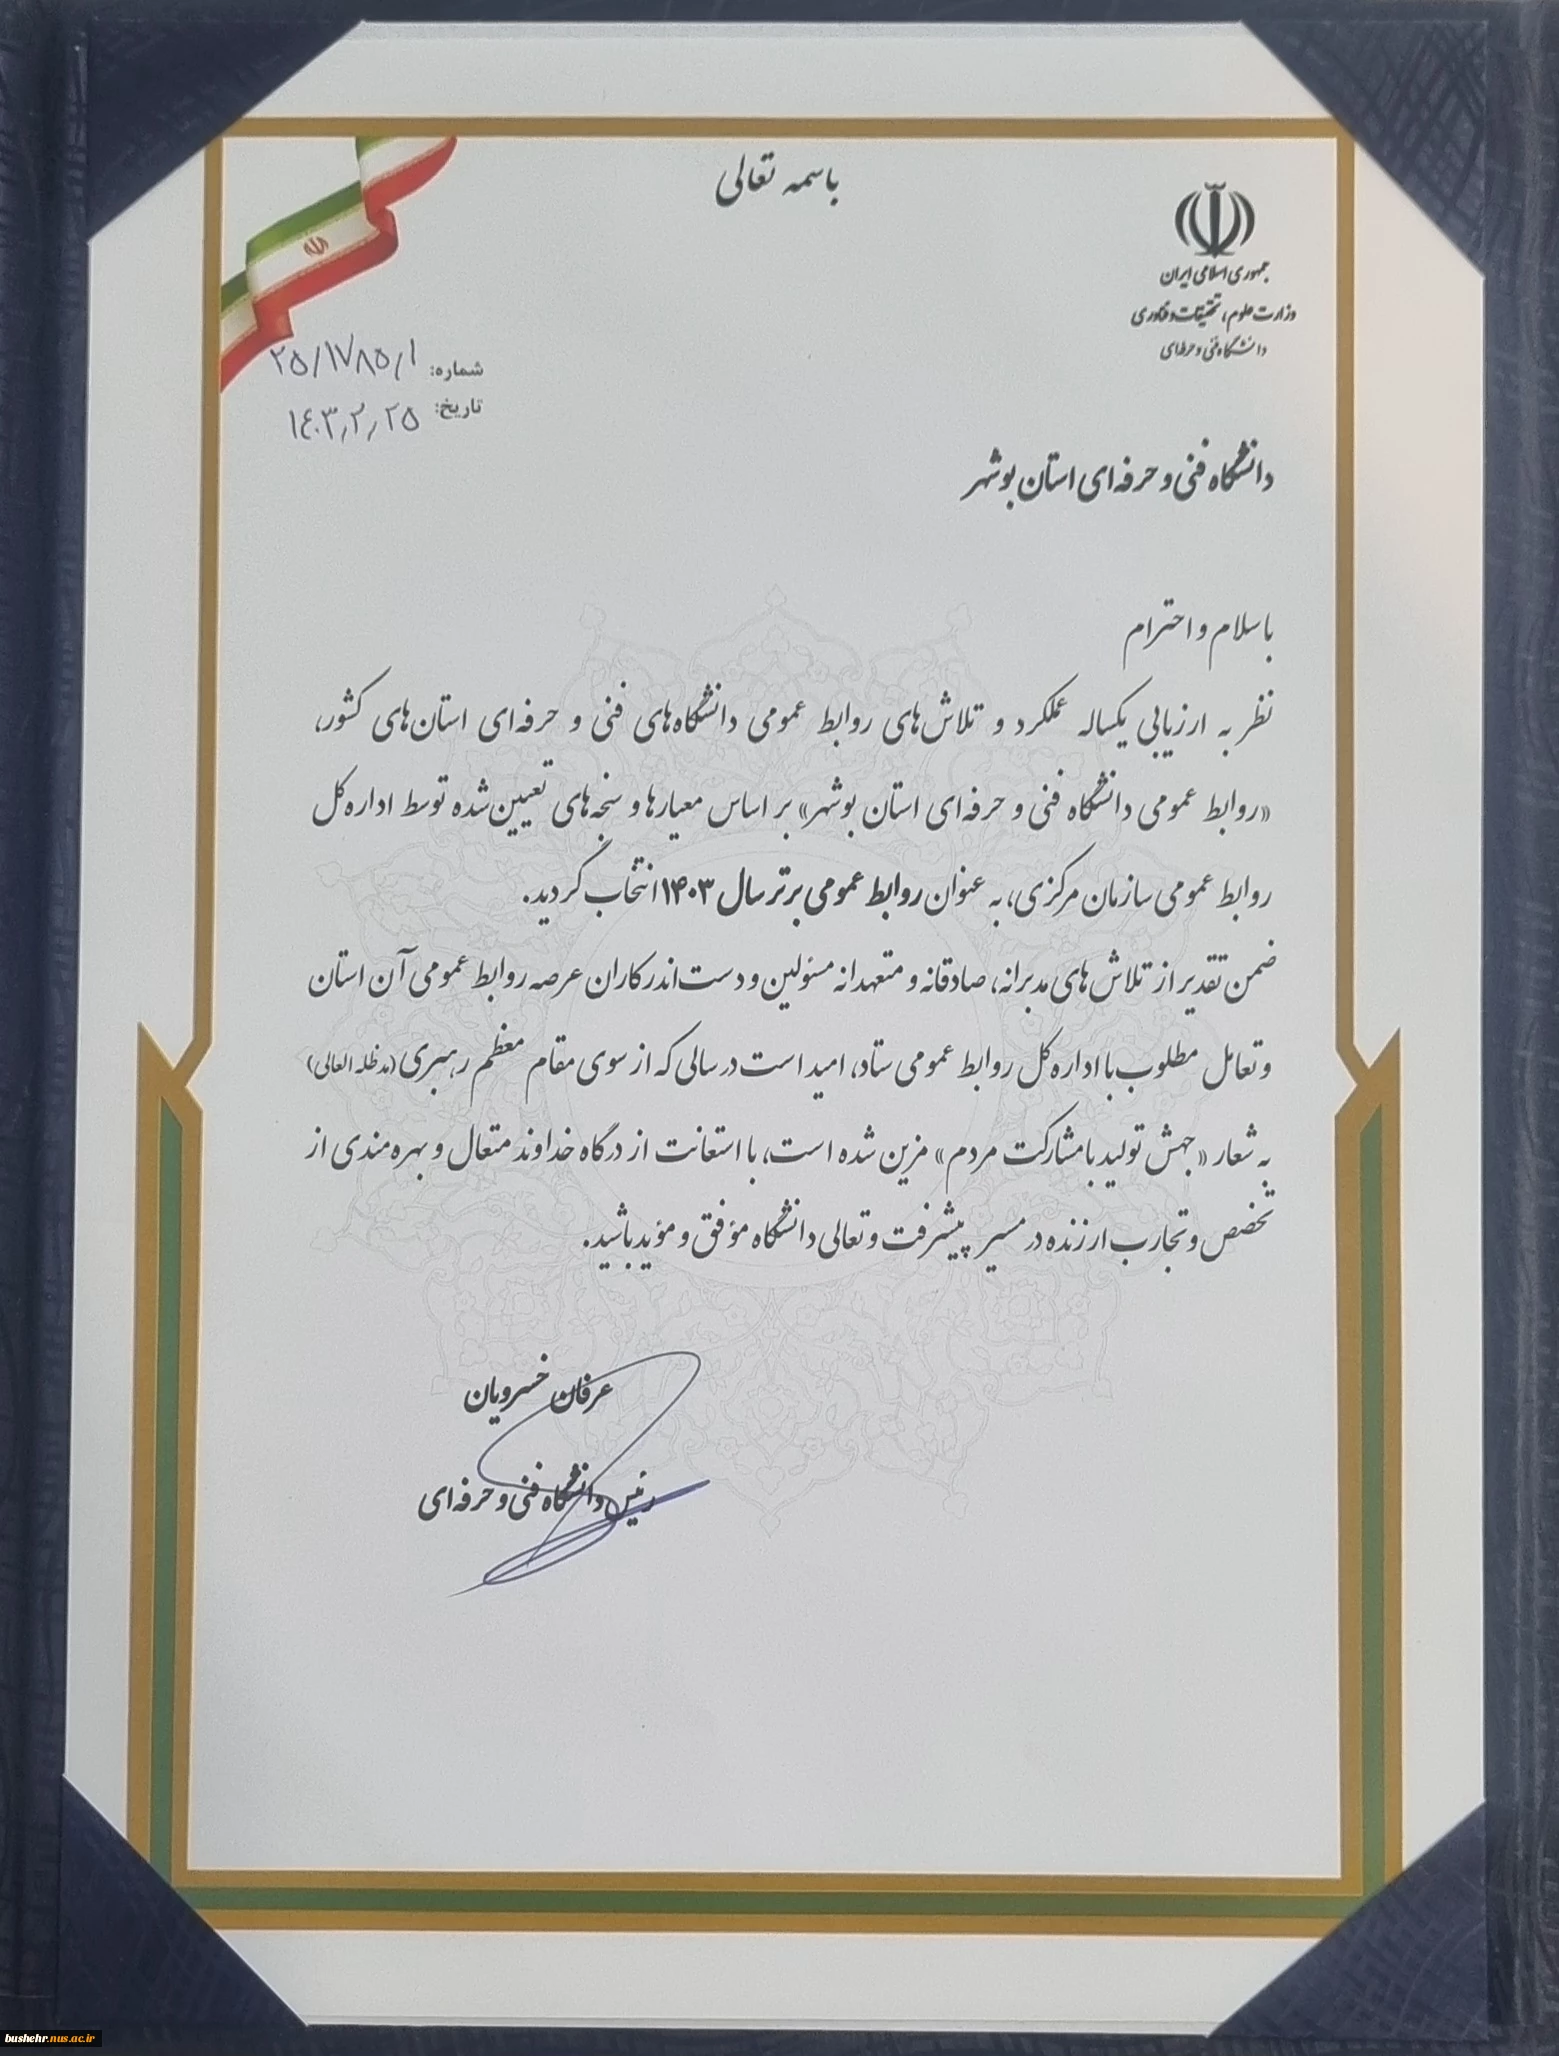 باسمه تعالی
جمهوری اسلامی ایران
وزارت علوم، تحقیقات و فناوری
دانشگاه فنی و حرفه‌ای
شماره: ۲۵/۱۷۸۵/۱
تاریخ: ۱۴۰۳/۲/۲۵
دانشگاه فنی و حرفه‌ای استان بوشهر
با سلام و احترام
نظر به ارزیابی یکساله عملکرد و تلاش‌های روابط عمومی دانشگاه‌های فنی و حرفه‌ای استان‌های کشور،
«روابط عمومی دانشگاه فنی و حرفه‌ای استان بوشهر» بر اساس معیارها و سنجه‌های تعیین‌شده توسط اداره کل
روابط عمومی سازمان مرکزی، به عنوان روابط عمومی برتر سال ۱۴۰۳ انتخاب گردید.
ضمن تقدیر از تلاش‌های مدبرانه، صادقانه و متعهدانه مسئولین و دست‌اندرکاران عرصه روابط عمومی آن استان
و تعامل مطلوب با اداره کل روابط عمومی ستاد، امید است در سالی که از سوی مقام معظم رهبری (مدظله العالی)
به شعار «جهش تولید با مشارکت مردم» مزین شده است، با استعانت از درگاه خداوند متعال و بهره‌مندی از
تخصص و تجارب ارزنده در مسیر پیشرفت و تعالی دانشگاه مؤفق و مؤید باشید.
عرفان خسرویان
رئیس دانشگاه فنی و حرفه‌ای
bushehr.nus.ac.ir